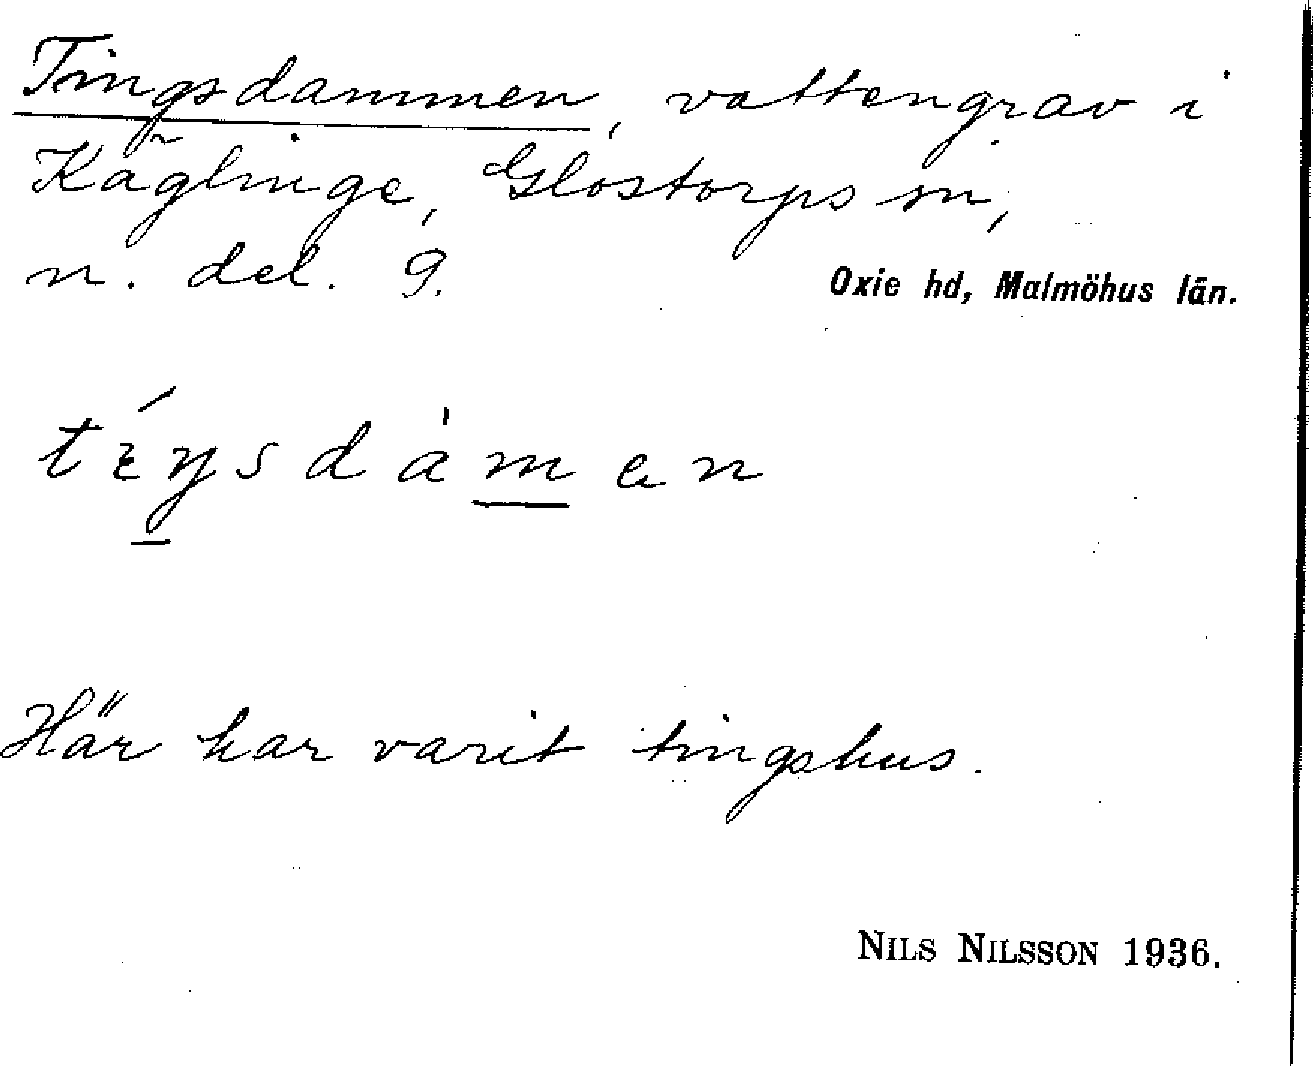 Tingsdammen, vattengrav i
Käglinge, Glostorps sn,
n. del. 9.
Oxie hd, Malmöhus län.
Här har varit tingshus.
NILS NILSSON 1936.